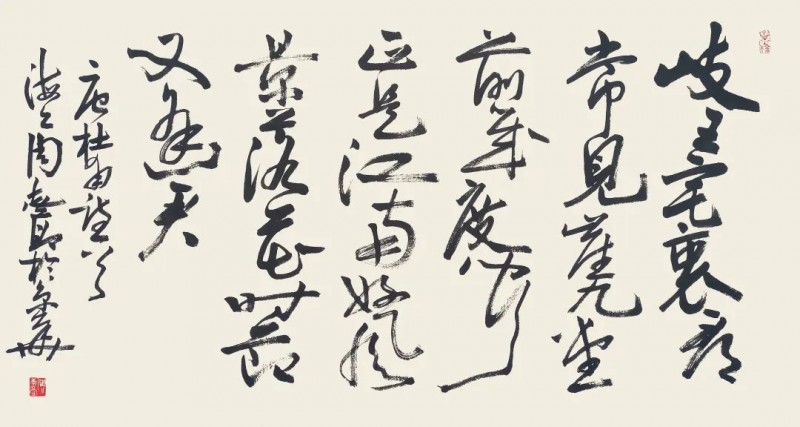 岐王宅裏尋
常見崔九堂
前幾度聞
正是江南好風
景落花時節
又逢君
唐杜甫詩
周於